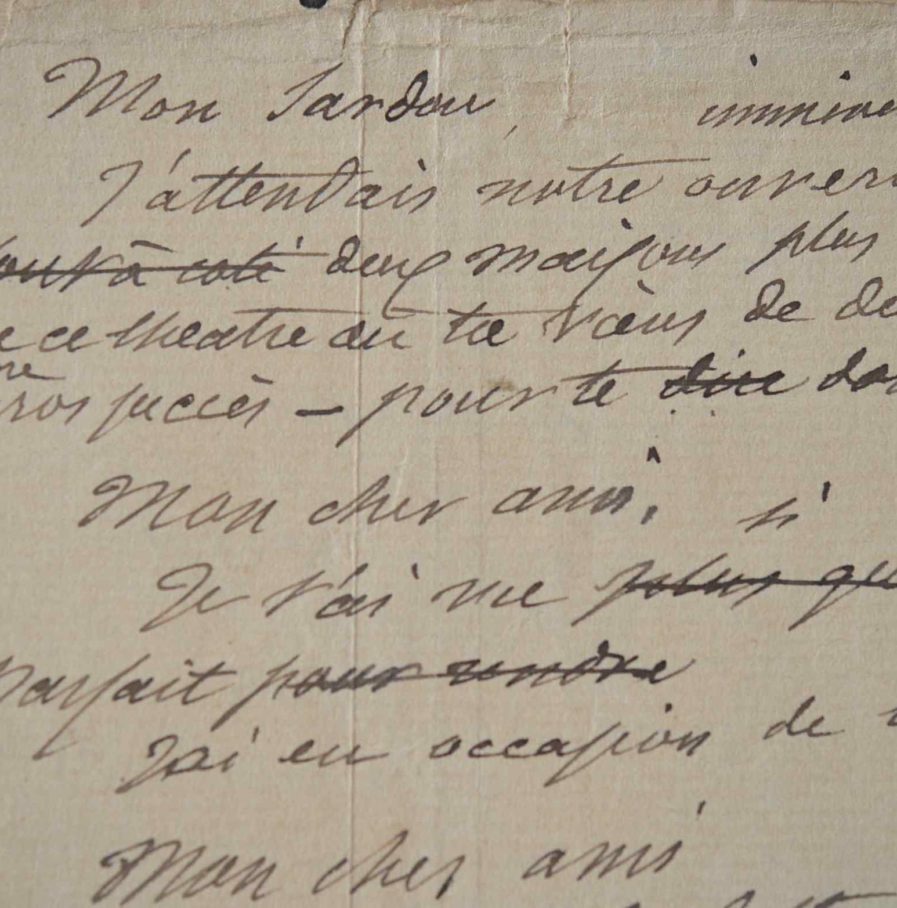 Mon Sardou, immine
J'attendais notre ouver
tout à coté deux maisons plus
ce theatre où tu viens de
gros succès – pour te dire
Mon cher ami, si
Je t'ai vue plus que
parfait pour rendre
J'ai eu occasion de
Mon cher ami